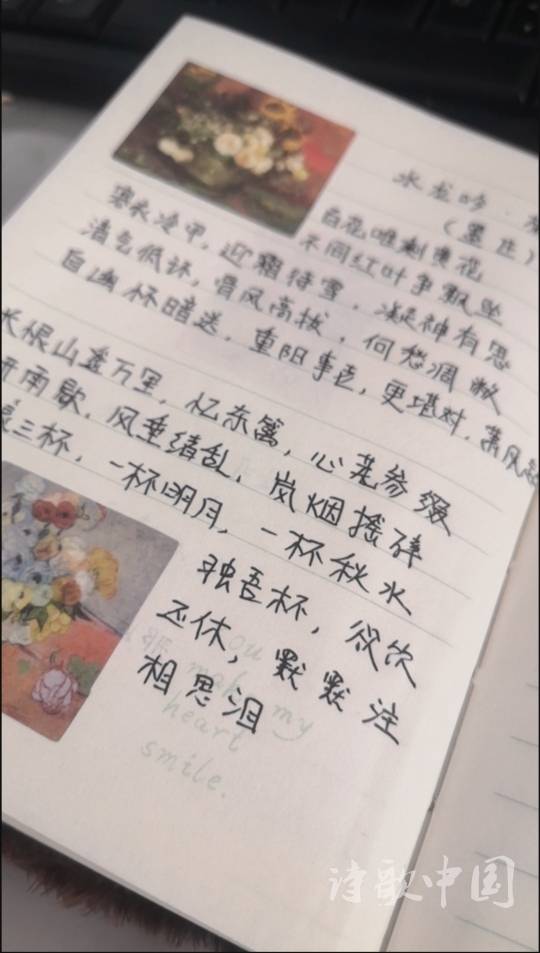 水龙吟·
（墨庄）
百花唯剩黄花
不同红叶争飘坠
寒衣冷甲，迎霜待雪，凝神有思
清气低沐，骨风高拔，何愁凋敝
自幽杯暗送，重阳事
更堪对，
长恨山盘万里，忆东篱，心花参缀
雨歇，风垂绪乱，岚烟摇碎
三杯，一杯明月，一杯秋水
独吾杯，欲饮
还休，默默注
相思泪
you
make my
heart
smile.
诗歌中国